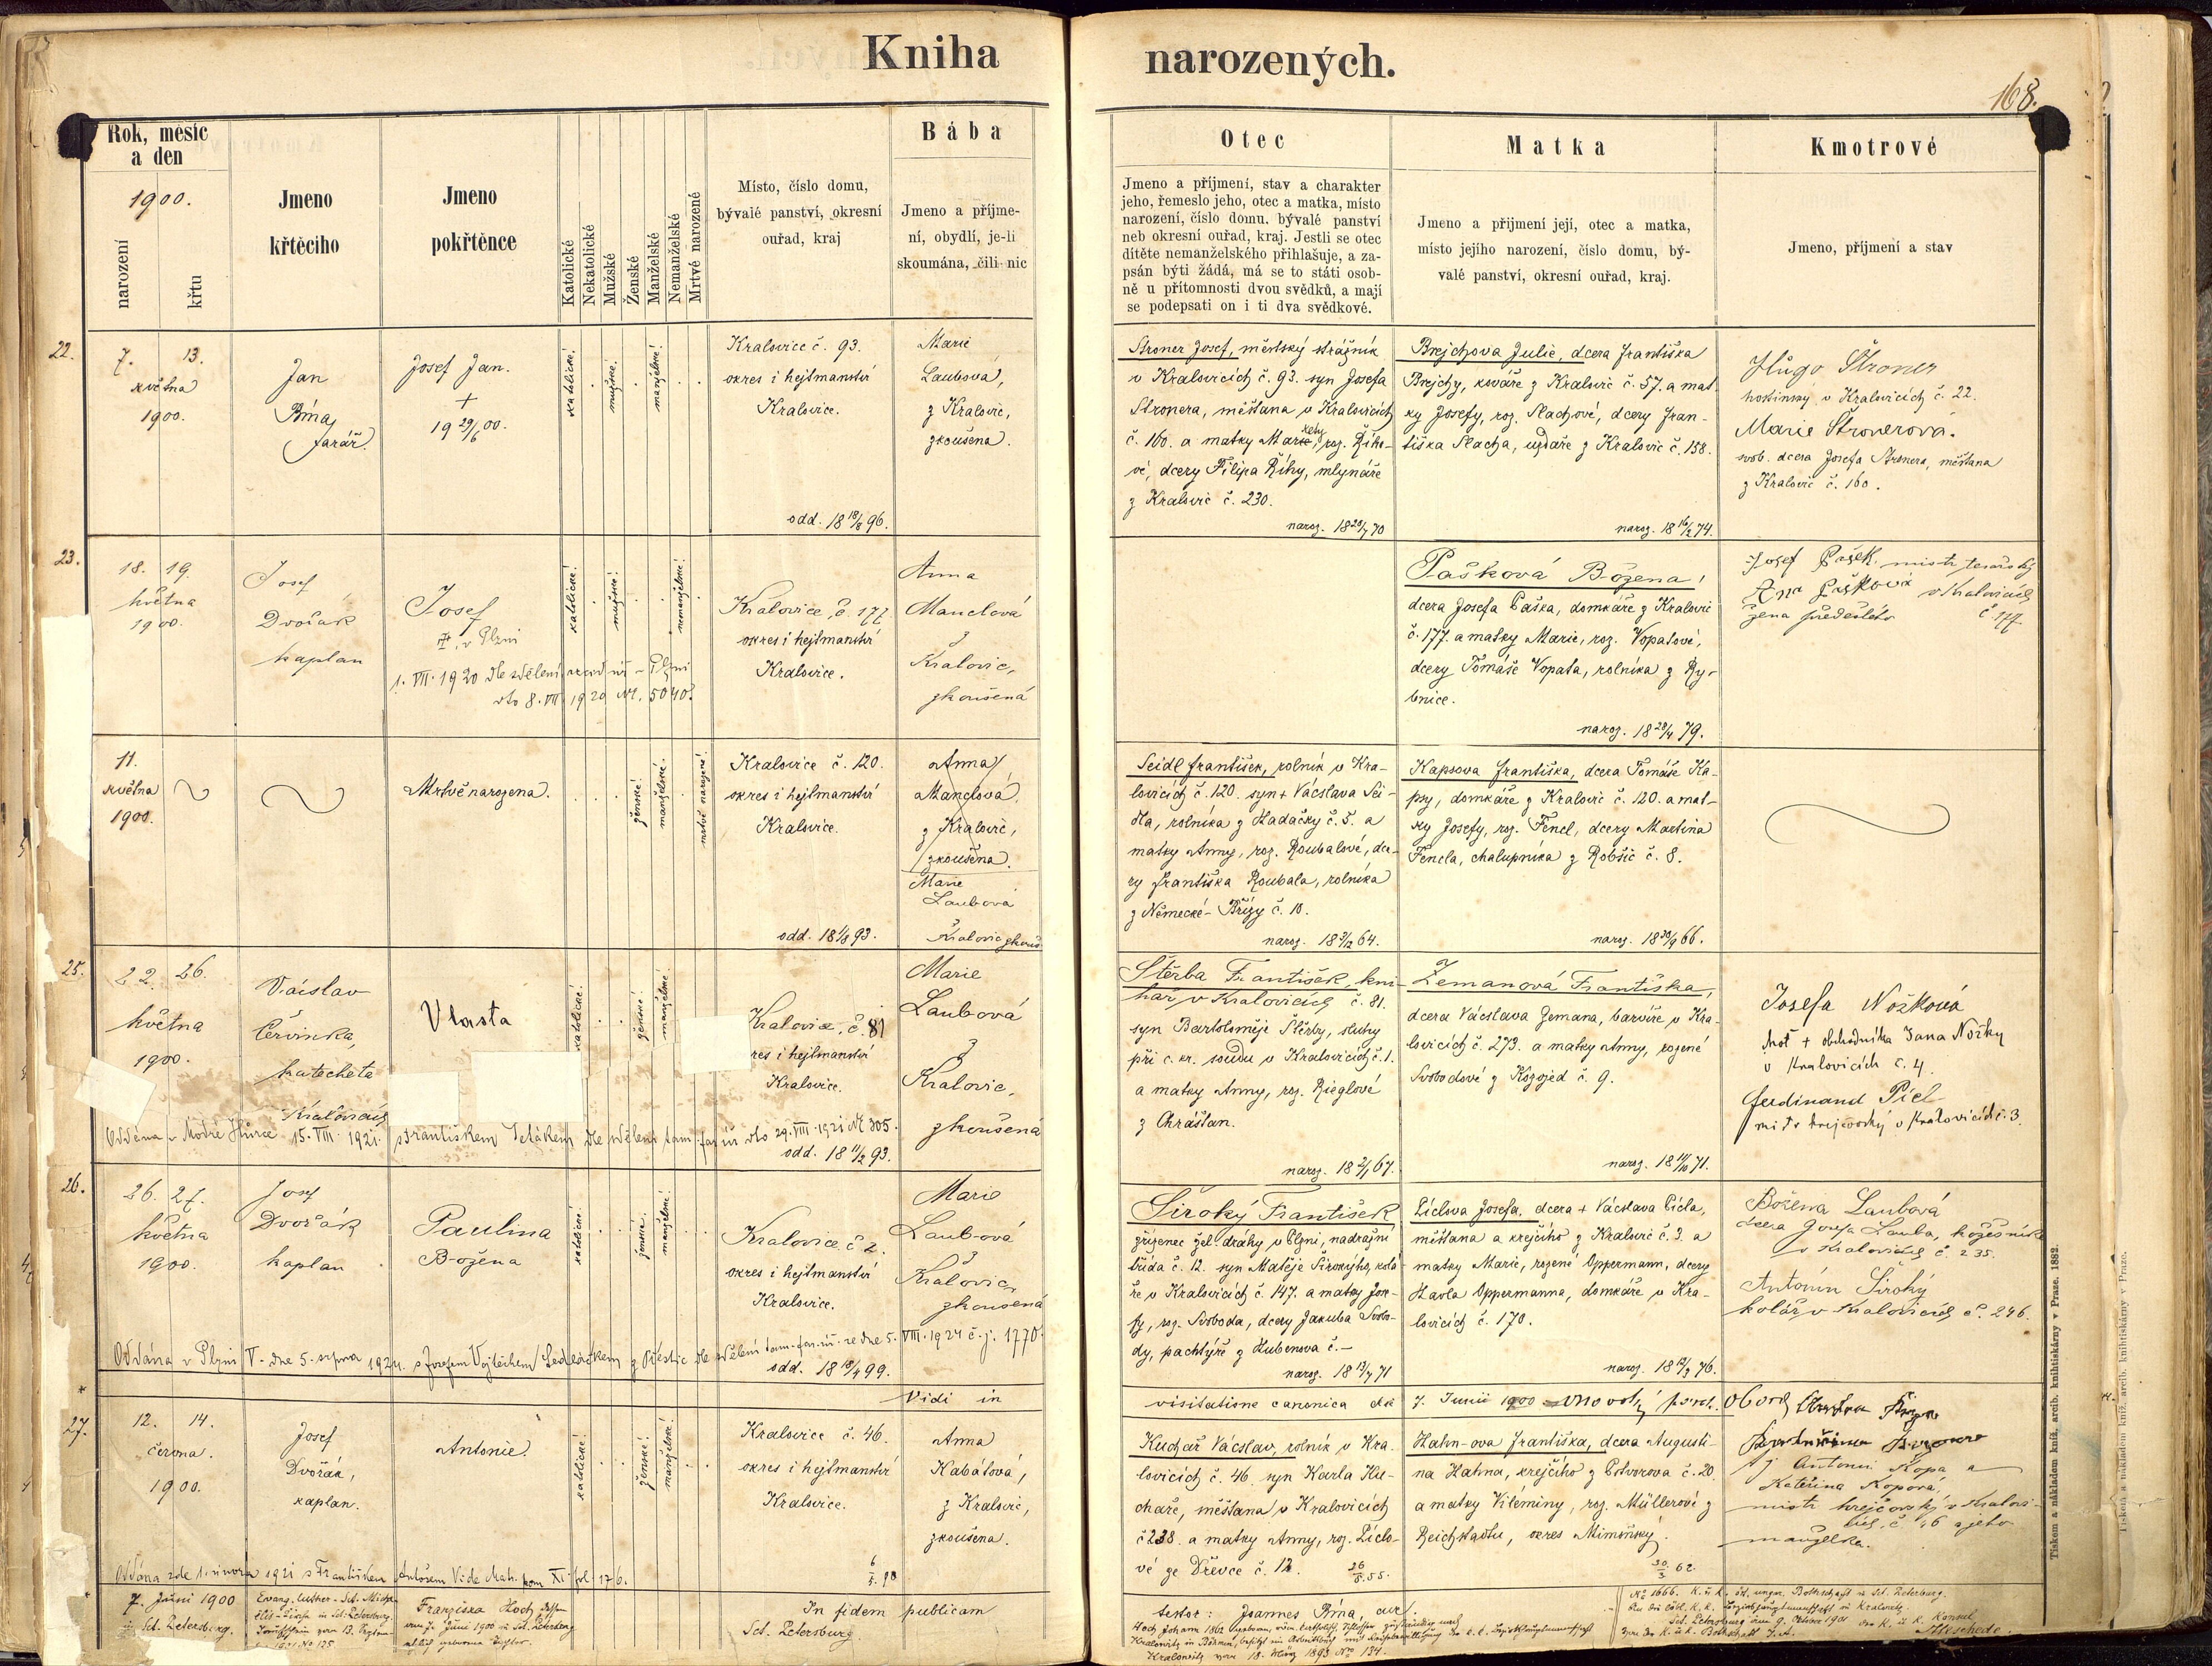 Kniha narozených.
168.
Rok, měsíc
a den
1900.
narození
křtu
Jmeno
křtěcího
Jmeno
pokřtěnce
Katolické
Nekatolické
Mužské
Ženské
Manželské
Nemanželské
Mrtvě narozené
Místo, číslo domu,
bývalé panství, okresní
ouřad, kraj
Bába
Jmeno a příjme-
ní, obydlí, je-li
skoumána, čili nic
Otec
Jmeno a příjmení, stav a charakter
jeho, řemeslo jeho, otec a matka, místo
narození, číslo domu, bývalé panství
neb okresní ouřad, kraj. Jestli se otec
dítěte nemanželského přihlašuje, a za-
psán býti žádá, má se to státi osob-
ně u přítomnosti dvou svědků, a mají
se podepsati on i ti dva svědkové.
Matka
Jmeno a přijmení její, otec a matka,
místo jejího narození, číslo domu, bý-
valé panství, okresní ouřad, kraj.
Kmotrové
Jmeno, příjmení a stav
22.
7. 13.
května
1900.
Jan
Bíma,
farář.
Josef Jan.
+
19 29/6 00.
katolické!
mužské!
manželské!
Kralovice č. 93.
okres i hejtmanství
Kralovice.
odd. 18 18/8 96.
Marie
Laubová,
z Kralovic,
zkoušena.
Stroner Josef, městský strážník
v Kralovicích č. 93. syn Josefa
Stronera, měšťana v Kralovicích
č. 160. a matky Markéty, roz. Řího-
vé, dcery Filipa Říhy, mlynáře
z Kralovic č. 230.
naroz. 18 20/7 70
Brejchova Julie, dcera Františka
Brejchy, kováře z Kralovic č. 57. a mat
ky Josefy, roz. Slachové, dcery Fran-
tiška Slacha, uzdaře z Kralovic č. 158.
naroz. 18 16/2 74.
Hugo Štroner
hostinský v Kralovicích č. 22.
Marie Štronerová.
svob. dcera Josefa Stronera, měšťana
z Kralovic č. 160.
23.
18. 19.
května
1900.
Josef
Dvořák
kaplan
Josef
v Plzni
1. VII. 1920 dle sdělení
dto 8. VII 1920 č. 5040?
katolické!
mužské!
nemanželské!
Kralovice, č. 177
okres i hejtmanství
Kralovice.
Anna
Manclová
z
Kralovic,
zkoušená
Pašková Božena!
dcera Josefa Paška, domkáře z Kralovic
č. 177. a matky Marie, roz. Vopatové,
dcery Tomáše Vopata, rolníka z Ry-
bnice.
naroz. 18 28/4 79.
Josef Pašek, mistr tesařský
Ana Pašková v Kralovicích
žena předešlého č. 177.
11.
května
1900.
Mrtvě narozena.
ženské!
manželské!
mrtvě narozené!
Kralovice č. 120.
okres i hejtmanství
Kralovice.
odd. 18 1/8 93.
Anna
Manclová
z Kralovic,
zkoušena.
Marie
Laubová
Kralovic zkouš.
Seidl František, rolník v Kra-
lovicích č. 120. syn + Václava Sei-
dla, rolníka z Hadačky č. 5. a
matky Anny, roz. Roubalové, dce-
ry Františka Roubala, rolníka
z Německé-Břízy č. 10.
naroz. 18 3/12 64.
Kapsova Františka, dcera Tomáše Ka-
psy, domkáře z Kralovic č. 120. a mat-
ky Josefy, roz. Fencl, dcery Martina
Fencla, chalupníka z Robšic č. 8.
naroz. 18 30/9 66.
25.
22. 26.
května
1900.
Václav
Červinka,
katecheta
Kralovicích
Vlasta
katolické!
ženské!
manželské!
Kralovice, č. 81
res i hejtmanství
Kralovice.
Oddána v Modré Hůrce 15. VIII. 1921. s Františkem dle sdělení tam. far. úř. dto 29. VIII. 1921 č. 305.
odd. 18 11/2 93.
Marie
Laubová
z
Kralovic,
zkoušená
Štěrba František, kni-
hař v Kralovicích č. 81.
syn Bartoloměje Štěrby, sluhy
při c. kr. soudu v Kralovicích č. 1.
a matky Anny, roz. Rieglové
z Chrášťan.
naroz. 18 2/1 67.
Zemanová Františka,
dcera Václava Zemana, barvíře v Kra-
lovicích č. 273. a matky Anny, rozené
Svobodové z Kozojed č. 9.
naroz. 18 14/10 71.
Josefa Nožková
choť + obchodníka Jana Nožky
v Kralovicích č. 4.
Ferdinand Picl
mistr krejčovský v Kralovicích č. 3.
26.
26. 27.
května
1900.
Josef
Dvořák
kaplan
Paulina
Božena
katolické!
ženské!
manželské!
Kralovice č 2.
okres i hejtmanství
Kralovice.
Oddána v Plzni V. dne 5. srpna 1924. s Josefem Vojtěchem Sedláčkem z Přeštic dle sdělení tam. far. úř. ze dne 5. VIII. 1924 č. j. 1770.
odd. 18 18/4 99.
Marie
Laubová
z
Kralovic
zkoušená
Široký František
zřízenec žel. dráhy v Plzni, nádražní
búda č. 12. syn Matěje Širokýho, kolá
ře v Kralovicích č. 147. a matky Jose-
fy, roz. Svoboda, dcery Jakuba Svobo-
dy, pachtýře z Hubenova č. –
naroz. 18 13/7 71
Piclova Josefa, dcera + Václava Picla,
měšťana a krejčího z Kralovic č. 3. a
matky Marie, rozené Oppermann, dcery
Karla Oppermanna, domkáře v Kra-
lovicích č. 170.
naroz. 18 12/3 76.
Božena Laubová
dcera Josefa Lauba, kožešníka
v Kralovicích č 235.
Antonín Široký
kolář v Kralovicích č. 246.
Vidi in visitatione canonica die 7. Junii 1900
27.
12. 14.
června.
1900.
Josef
Dvořák,
kaplan.
Antonie.
katolické!
ženské!
manželské!
Kralovice č. 46.
okres i hejtmanství
Kralovice.
Oddána zde 1. února 1921 s Františkem Vide Matr. tom XI fol. 176.
6/5. 90
Anna
Kabátová,
z Kralovic,
zkoušena.
Kuchař Václav, rolník v Kra-
lovicích č. 46. syn Karla Ku-
chaře, měšťana v Kralovicích
č 238. a matky Anny, roz. Piclo-
vé ze Dřevce č. 12.
26/8. 55.
Hahn-ova Františka, dcera Augusti-
na Hahna, krejčího z Potvorova č. 20.
a matky Vilémíny, roz. Müllerové z
Reichstadtu, okres Mimoňský.
30/3 62.
Antonín Kopa a
Kateřina Kopová,
mistr krejčovský v Kralovi-
cích, č 46 a jeho
manželka.
7. Juni 1900
in Sct. Petersburg.
Evang. luther. Sct.
Franziska Hoch
In fidem publicam
Sct. Petersburg
testor: Joannes Bíma,
Hoch Johann 1862
Kralowitz in Böhmen
Kralowitz vom 18. März 1893 No 134.
No 1666. K. u. k. öst. ungar. Botschaft in Sct. Petersburg.
Sct. Petersburg am 9. October 1901
Der K. u. k. Konsul
Tiskem a nákladem kniž. arcib. knihtiskárny v Praze. 1882.
Tiskem a nákladem kniž. arcib. knihtiskárny v Praze.